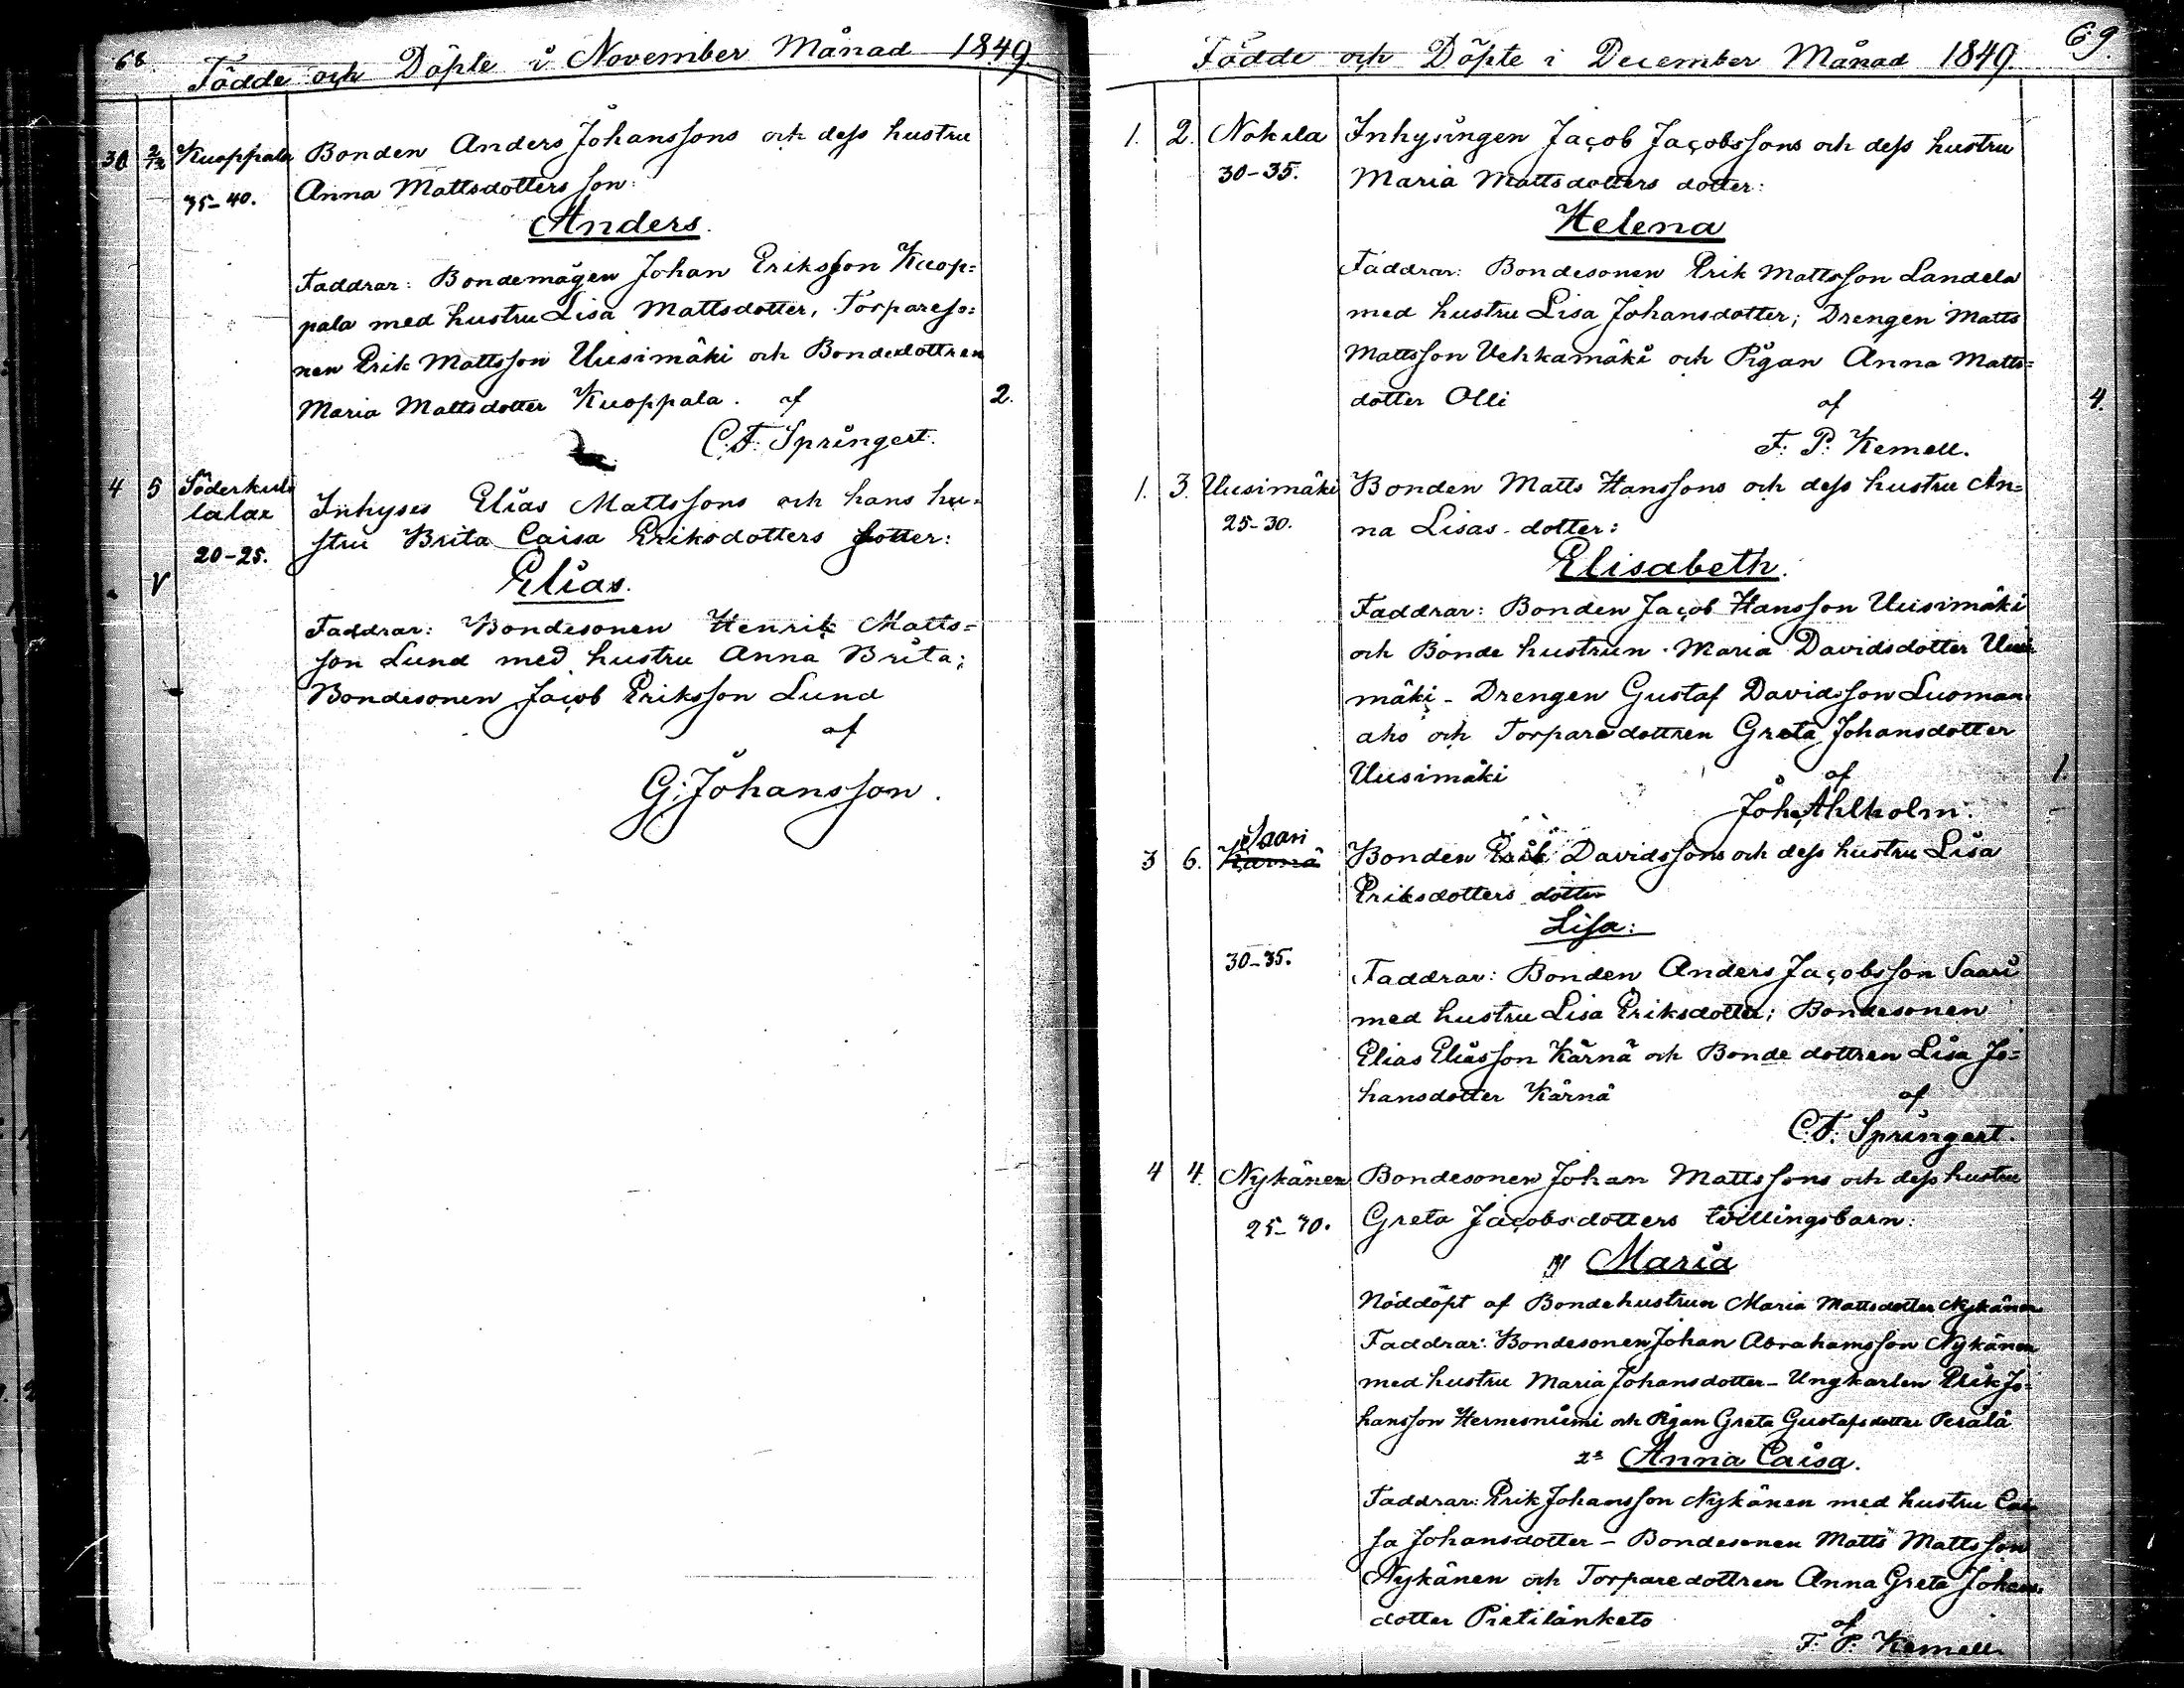 68.
Födde och Döpte i November Månad 1849
30 2/12 Kuoppala Bonden Anders Johanssons och dess hustru
35-40. Anna Mattsdotters son:
Anders.
Faddrar: Bondemågen Johan Eriksson Kuop=
pala med hustru Lisa Mattsdotter, Torpareso=
nen Erik Mattsson Uusimäki och Bondedottren
Maria Mattsdotter Kuoppala. af 2.
C.F. Springert.
4 5 Söderkul Inhyses Elias Mattssons och hans hu=
lalax stru Brita Caisa Eriksdotters
20-25.
V Elias.
Faddrar: Bondesonen Henrik Matts=
son Lund med hustru Anna Brita;
Bondesonen Jacob Eriksson Lund
af
G. Johansson.
69.
Födde och Döpte i December Månad 1849.
1. 2. Nokela Inhysingen Jacob Jacobssons och dess hustru
30-35. Maria Mattsdotters dotter:
Helena
Faddrar: Bondesonen Erik Mattsson Landela
med hustru Lisa Johansdotter; Drengen Matts
Mattsson Vehkamäki och Pigan Anna Matts=
dotter Olli af 4.
F. P. Kemell.
1. 3. Uusimäki Bonden Matts Hanssons och dess hustru An=
25-30. na Lisas dotter:
Elisabeth.
Faddrar: Bonden Jacob Hansson Uusimäki
och Bonde hustrun Maria Davidsdotter Uusi
mäki - Drengen Gustaf Davidsson Luoman
aho och Torparedottren Greta Johansdotter
Uusimäki af 1.
Joh. Ahlholm.
Saari
3 6. Kärnä Bonden Erik Davidssons och dess hustru Lisa
Eriksdotters dotter
Lisa:
30-35. Faddrar: Bonden Anders Jacobsson Saari
med hustru Lisa Eriksdotter; Bondesonen
Elias Eliasson Kärnä och Bonde dottren Lisa Jo=
hansdotter Kärnä af
C.F. Springert.
4 4. Nykänen Bondesonen Johan Mattssons och dess hustru
25-30. Greta Jacobsdotters tvillingsbarn:
Maria
Nöddöpt af Bondehustrun Maria Mattsdotter Nykänen
Faddrar: Bondesonen Johan Abrahamsson Nykänen
med hustru Maria Johansdotter - Ungkarlen Erik Jo=
hansson Hernesniemi och Pigan Greta Gustafsdotter Perälä
2: Anna Caisa.
Faddrar: Erik Johansson Nykänen med hustru Cai
sa Johansdotter - Bondesonen Matts Mattsson
Nykänen och Torparedottren Anna Greta Johans
dotter Pietilänketo
af
F. P. Kemell.